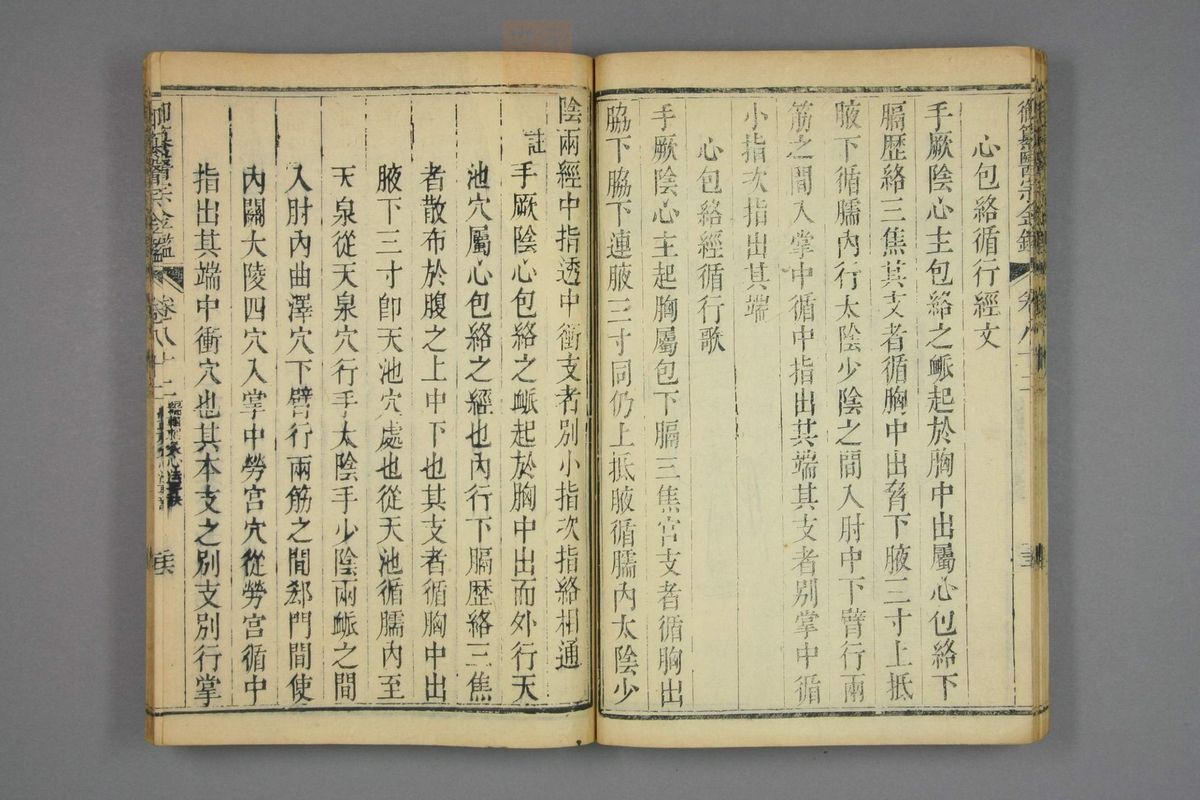 御纂醫宗金鑑 卷八十二
心包絡循行經文
手厥陰心主包絡之脈起於胸中出屬心包絡下
膈歷絡三焦其支者循胸中出脅下腋三寸上抵
腋下循臑內行太陰少陰之間入肘中下臂行兩
筋之間入掌中循中指出其端其支者別掌中循
小指次指出其端
心包絡經循行歌
手厥陰心主起胸屬包下膈三焦宮支者循胸出
脇下脇下連腋三寸同仍上抵腋循臑內太陰少
陰兩經中指透中衝支者別小指次指絡相通
註
手厥陰心包絡之脈起於胸中出而外行天
池穴屬心包絡之經也內行下膈歷絡三焦
者散布於腹之上中下也其支者循胸中出
腋下三寸卽天池穴處也從天池循臑內至
天泉從天泉穴行手太陰手少陰兩脈之間
入肘內曲澤穴下臂行兩筋之間郄門間使
內關大陵四穴入掌中勞宮穴從勞宮循中
指出其端中衝穴也其本支之別支別行掌
御纂醫宗金鑑 卷八十二